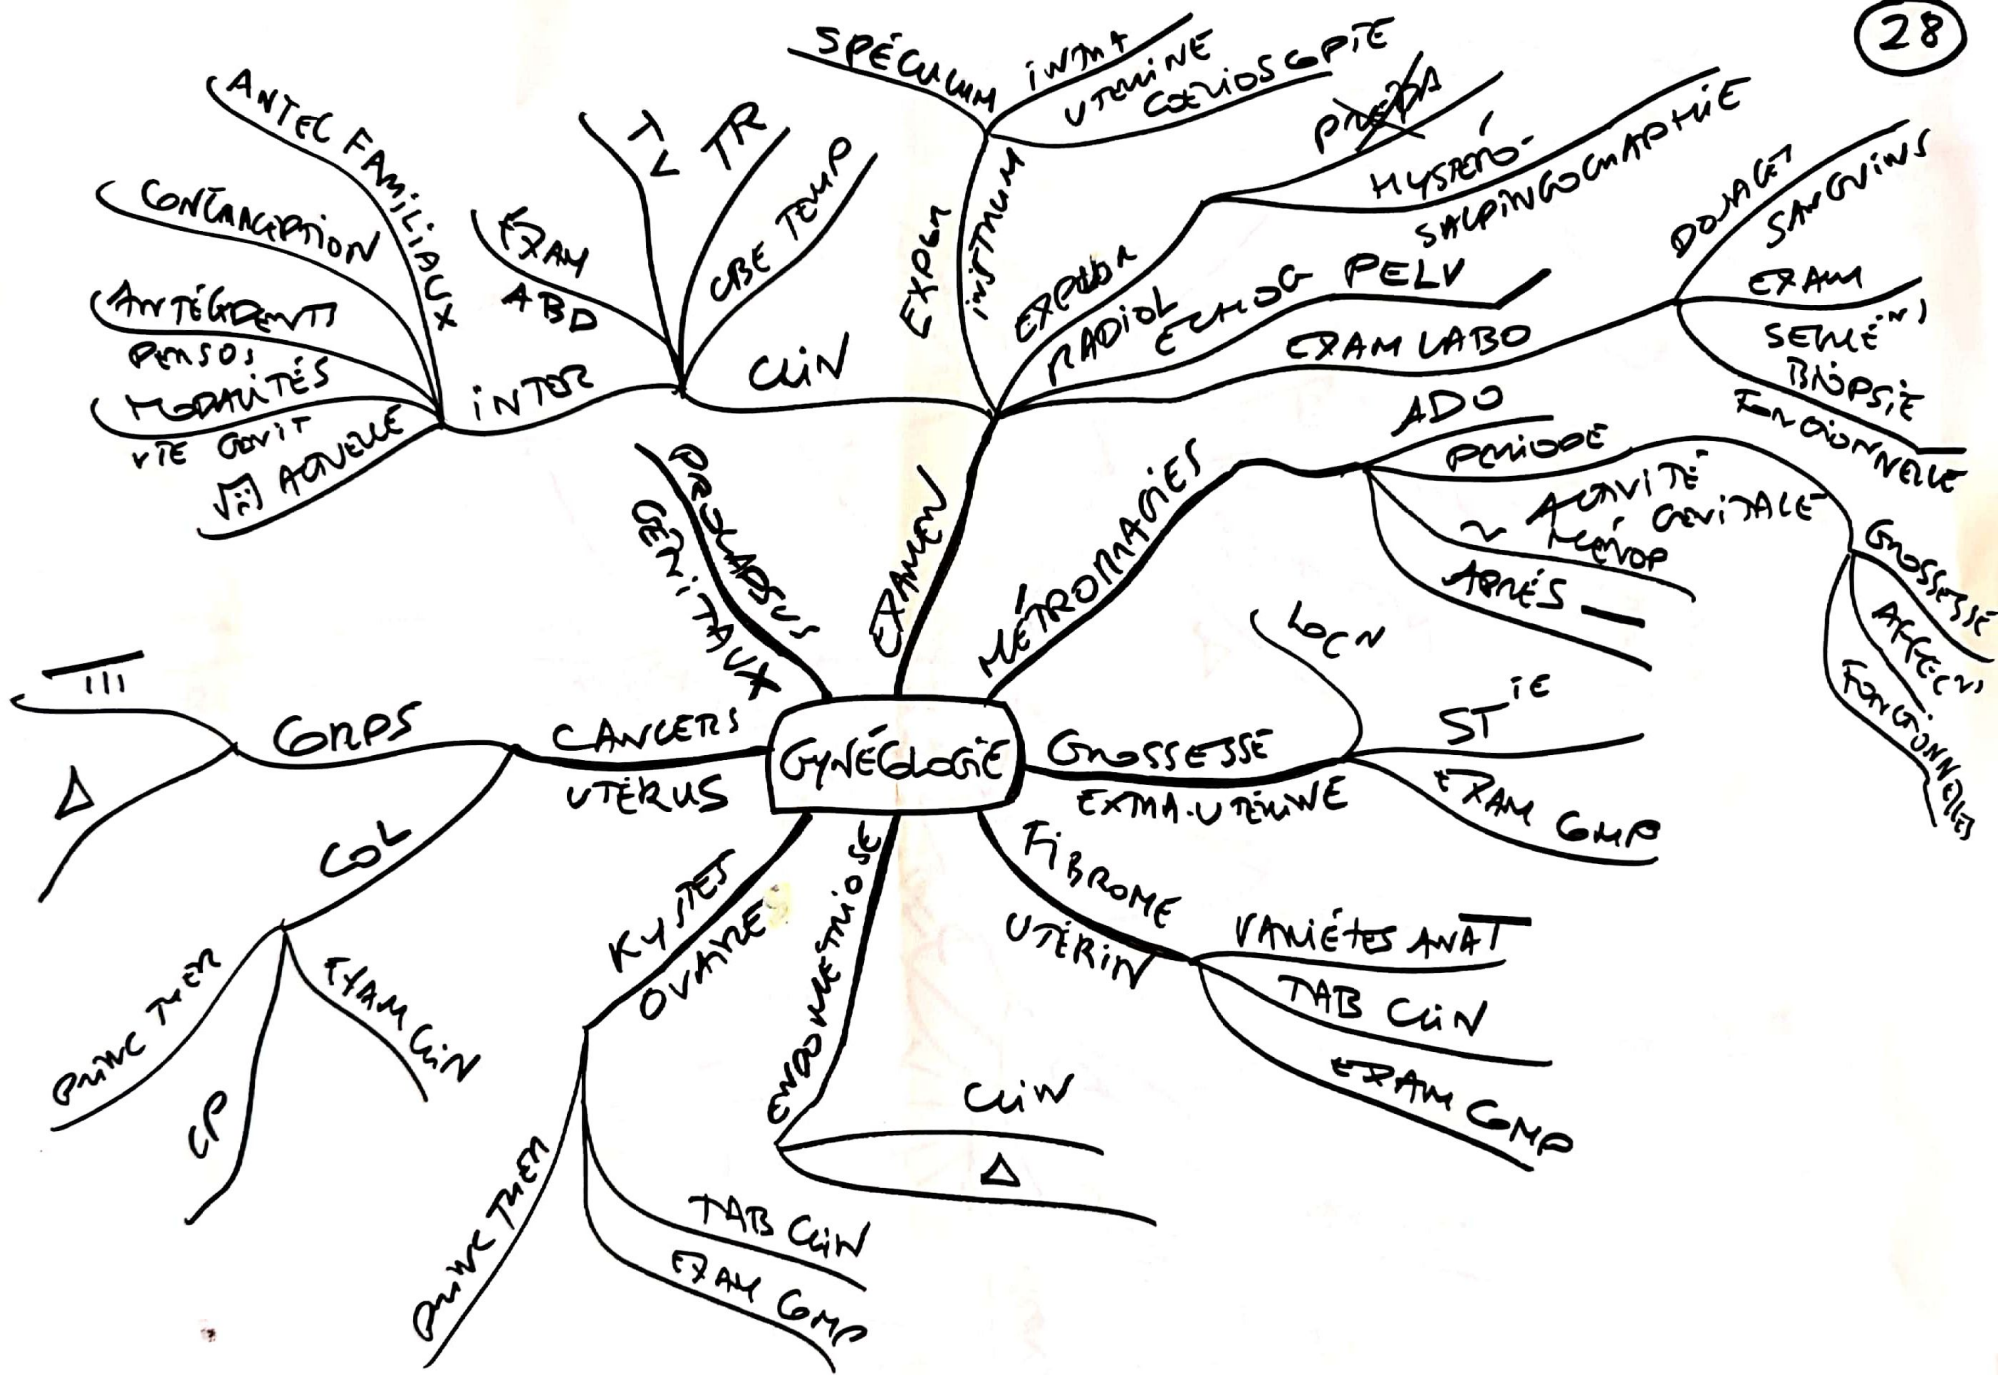 28
GYNÉCOLOGIE
EXAMEN
CLIN
INTER
ANTEC FAMILIAUX
CONTRACEPTION
ANTÉCÉDENTS
PERSOS
MODALITÉS
VIE GÉNIT
ACTUELLE
EXAM
ABD
TV
TR
CBE TEMP
EXPLOR
INSTRUM
SPÉCULUM
INTRA
UTERINE
CŒLIOSCOPIE
EXPLOR
RADIOL
HYSTÉRO-
SALPINGOGRAPHIE
ECHOG PELV
EXAM LABO
DOSAGES
SANGUINS
EXAM
BIOPSIE
FONCTIONNELLE
MÉTRORRAGIES
ADO
PERIODE
ACTIVITÉ
GENITALE
GROSSESSE
AFFECNS
FONCTIONNELLES
~ MÉNOP
APRÈS —
GROSSESSE
EXTRA-UTÉRINE
LOCN
STIE
EXAM COMP
FIBROME
UTÉRIN
VARIÉTES ANAT
TAB CLIN
EXAM COMP
ENDOMETRIOSE
CLIN
Δ
KYSTES
OVAIRE
TAB CLIN
EXAM COMP
PRINC THER
CANCERS
UTÉRUS
COL
EXAM CLIN
CP
PRINC THER
CORPS
Δ
PROLAPSUS
GÉNITAUX